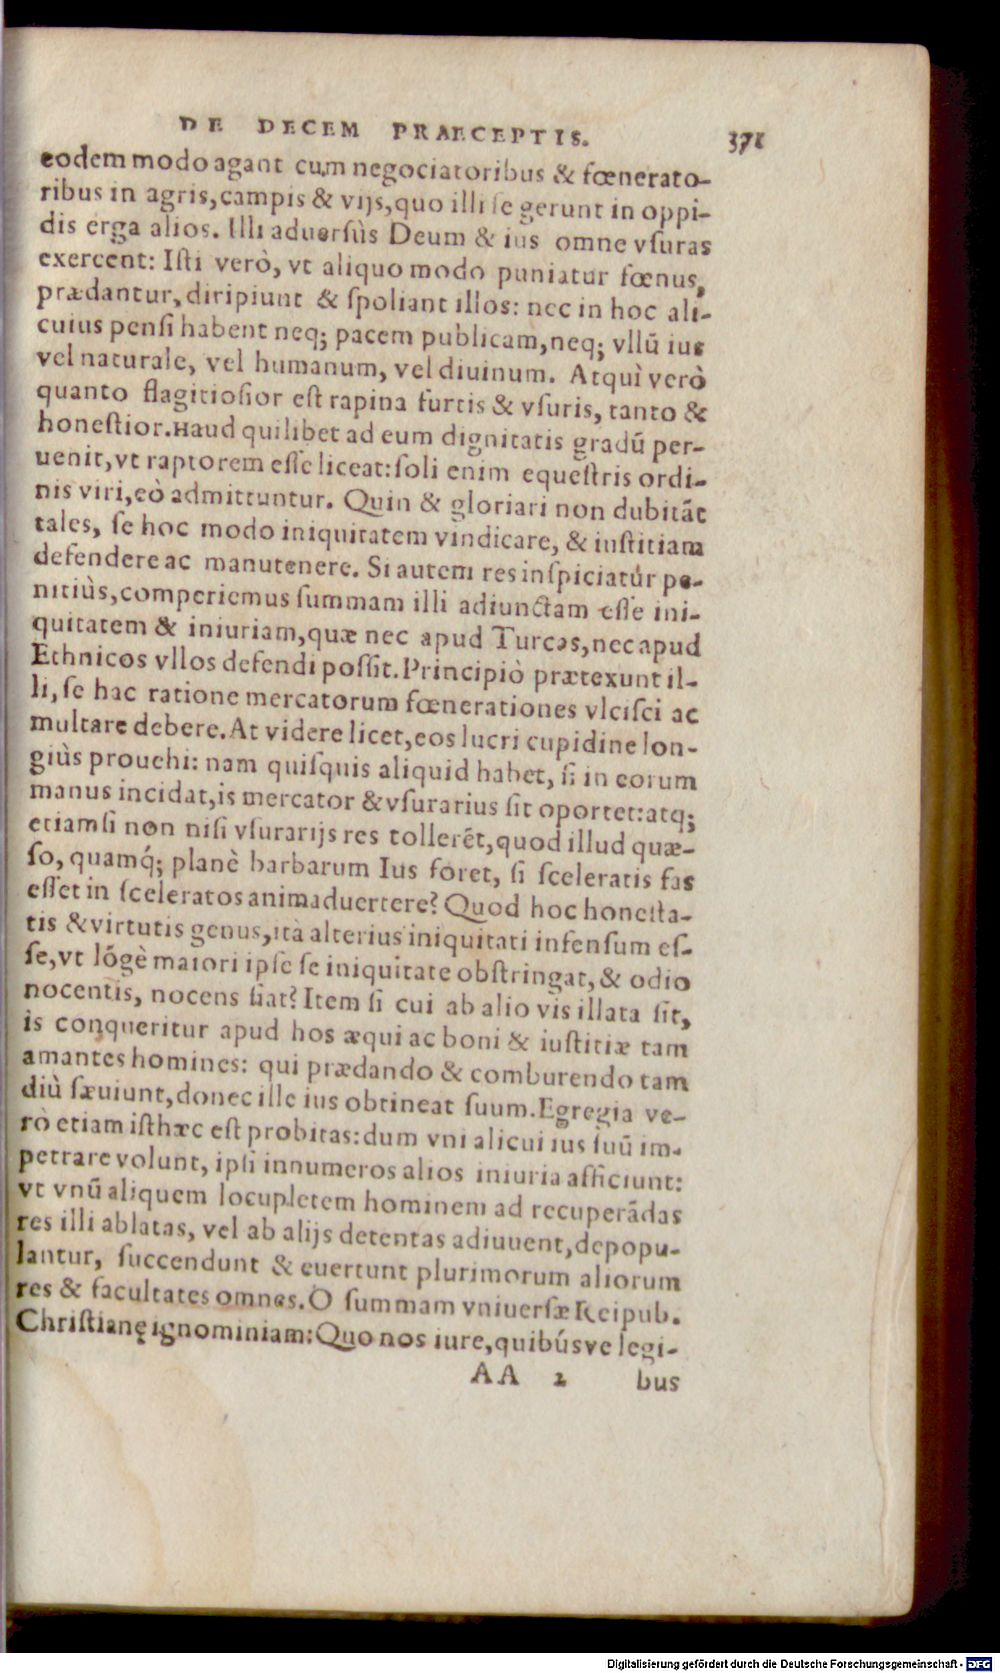 DE DECEM PRAECEPTIS. 371
eodem modo agant cum negociatoribus & fœnerato-
ribus in agris, campis & vijs, quo illi ſe gerunt in oppi-
dis erga alios. Illi aduersùs Deum & ius omne vſuras
exercent: Iſti verò, vt aliquo modo puniatur fœnus,
prædantur, diripiunt & ſpoliant illos: nec in hoc ali-
cuius penſi habent neq; pacem publicam, neq; vllũ ius
vel naturale, vel humanum, vel diuinum. Atquì verò
quanto flagitioſior eſt rapina furtis & vſuris, tanto &
honeſtior. Haud quilibet ad eum dignitatis gradũ per-
uenit, vt raptorem eſſe liceat: ſoli enim equeſtris ordi-
nis viri, eò admittuntur. Quin & gloriari non dubitãt
tales, ſe hoc modo iniquitatem vindicare, & iuſtitiam
defendere ac manutenere. Si autem res inſpiciatur pe-
nitiùs, comperiemus ſummam illi adiunctam eſſe ini-
quitatem & iniuriam, quæ nec apud Turcas, nec apud
Ethnicos vllos defendi poſſit. Principiò prætexunt il-
li, ſe hac ratione mercatorum fœnerationes vlciſci ac
multare debere. At videre licet, eos lucri cupidine lon-
giùs prouehi: nam quiſquis aliquid habet, ſi in eorum
manus incidat, is mercator & vſurarius ſit oportet: atq;
etiamſi non niſi vſurarijs res tollerẽt, quod illud quæ-
ſo, quamq́; planè barbarum Ius foret, ſi ſceleratis fas
eſſet in ſceleratos animaduertere? Quod hoc honeſta-
tis & virtutis genus, ità alterius iniquitati infenſum eſ-
ſe, vt lõgè maiori ipſe ſe iniquitate obſtringat, & odio
nocentis, nocens fiat? Item ſi cui ab alio vis illata ſit,
is conqueritur apud hos æqui ac boni & iuſtitiæ tam
amantes homines: qui prædando & comburendo tam
diù ſæuiunt, donec ille ius obtineat ſuum. Egregia ve-
rò etiam iſthæc eſt probitas: dum vni alicui ius ſuũ im-
petrare volunt, ipſi innumeros alios iniuria afficiunt:
vt vnũ aliquem locupletem hominem ad recuperãdas
res illi ablatas, vel ab alijs detentas adiuuent, depopu-
lantur, ſuccendunt & euertunt plurimorum aliorum
res & facultates omnes. O ſummam vniuerſæ Reipub.
Chriſtianę ignominiam: Quo nos iure, quibúsve legi-
AA 2 bus
Digitalisierung gefördert durch die Deutsche Forschungsgemeinschaft - DFG